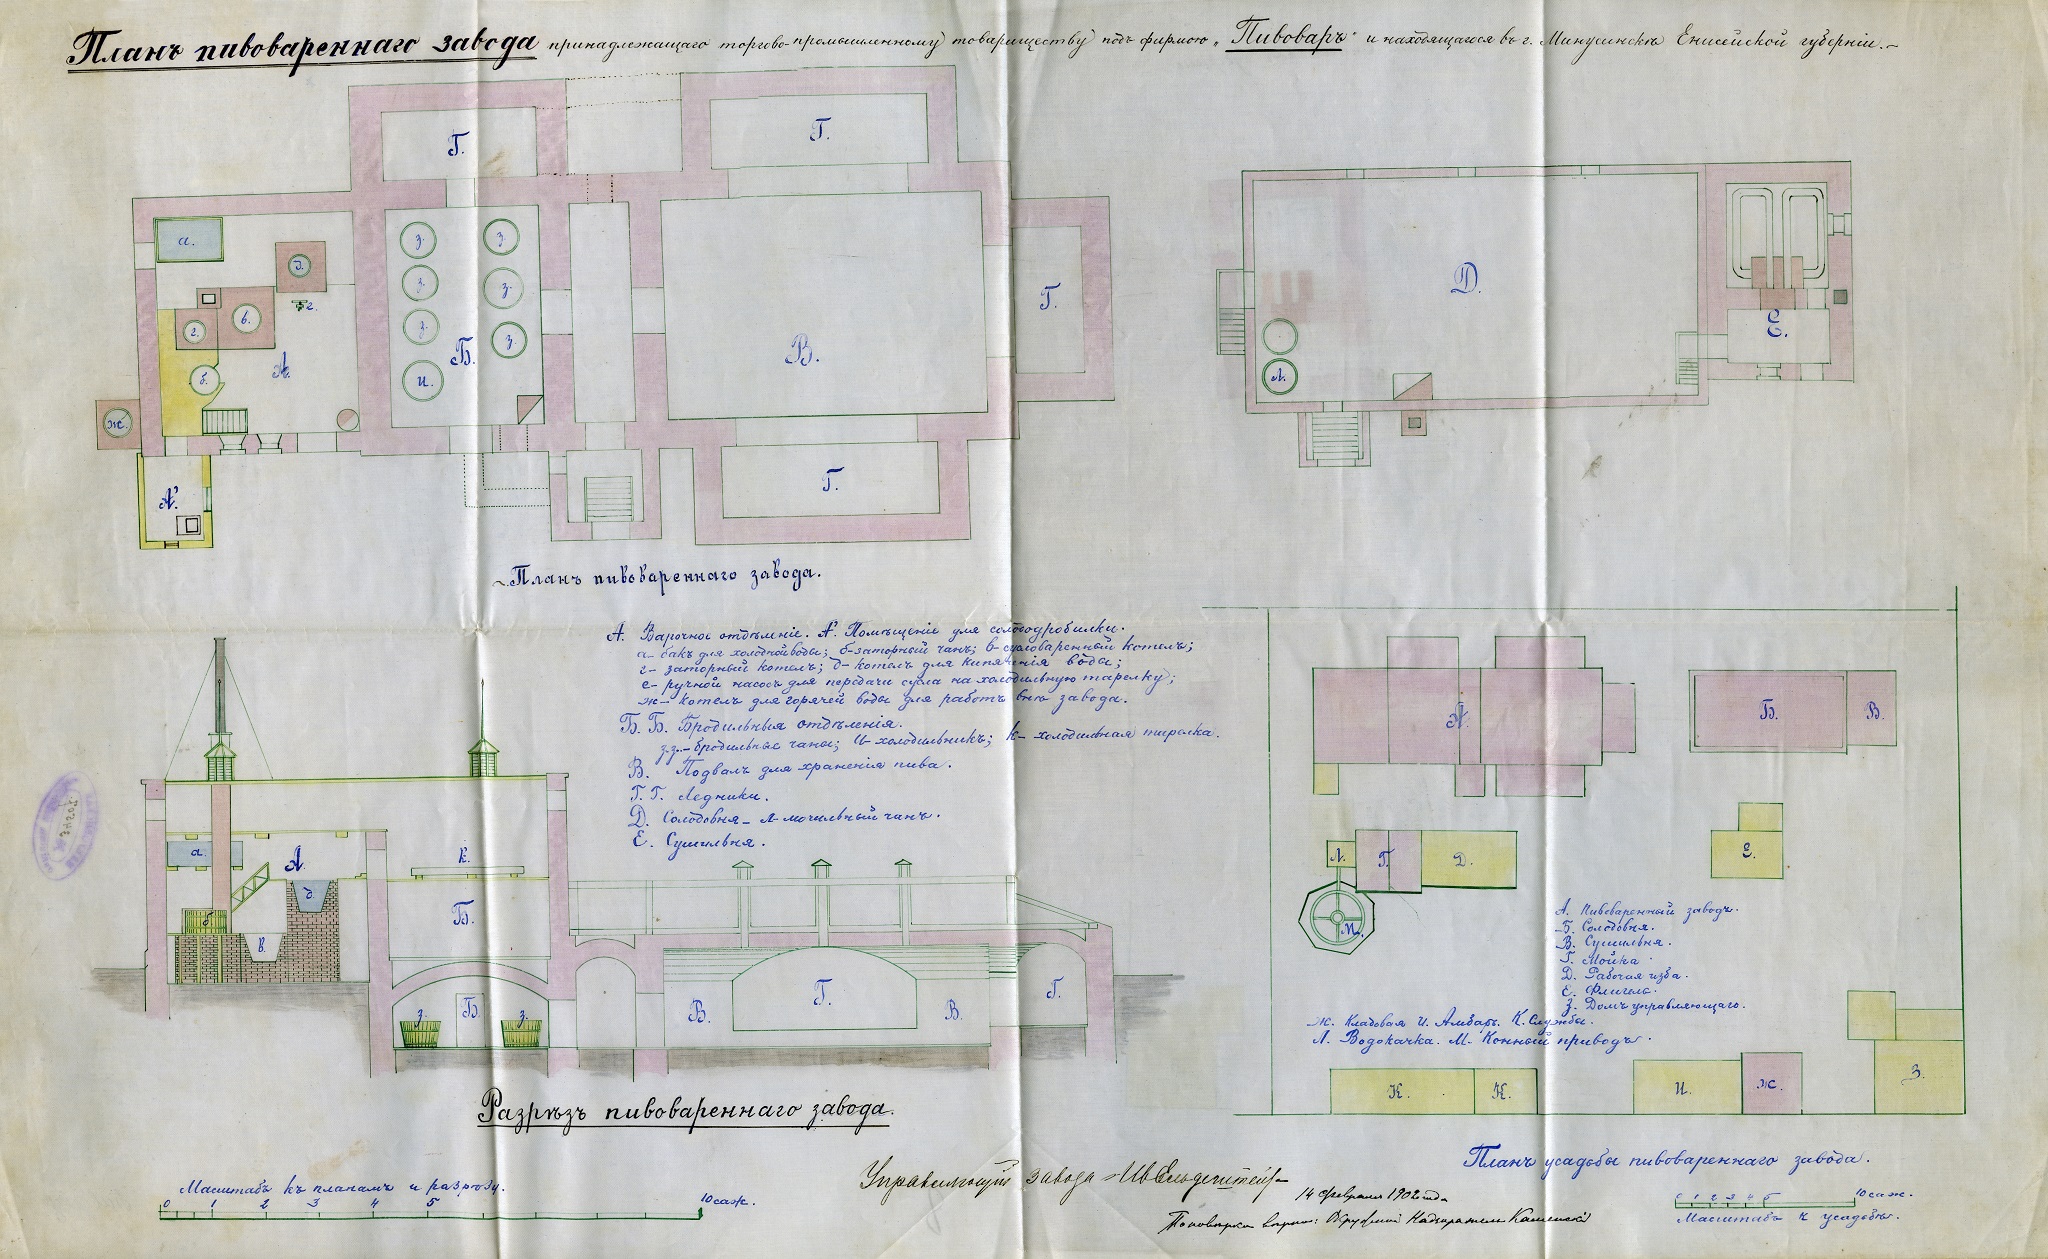 Планъ пивовареннаго завода принадлежащаго торгово-промышленному товариществу подъ фирмою „Пивоваръ“ и находящагося въ г. Минусинскѣ Енисейской губерніи.
Г.
Г.
а.
д.
е.
в.
г.
б.
А.
ж.
А'.
з.
з.
з.
з.
з.
з.
и.
Б.
В.
Г.
Г.
Д.
Л.
Е.
Планъ пивовареннаго завода.
А. Варочное отдѣленіе. А'. Помѣщеніе для солододробилки.
а- бакъ для холодной воды; б- заторный чанъ; в- сусловаренный котелъ;
г- заторный котелъ; д- котелъ для кипяченія воды;
е- ручной насосъ для передачи сусла на холодильную тарелку;
ж- котелъ для горячей воды для работъ внѣ завода.
Б. Б. Бродильныя отдѣленія.
з.з.- бродильные чаны; и- холодильникъ; к- холодильная тарелка.
В. Подвалъ для храненія пива.
Г. Г. Ледники.
Д. Солодовня - л- мочильный чанъ.
Е. Сушильня.
а.
А.
д.
б.
в.
к.
Б.
з.
Б.
з.
В.
Г.
В.
Г.
Разрѣзъ пивовареннаго завода.
Масштабъ къ планамъ и разрѣзу.
0 1 2 3 4 5 10 саж.
А.
Б.
В.
Л.
Г.
Д.
М.
Е.
А. Пивоваренный заводъ.
Б. Солодовня.
В. Сушильня.
Г. Мойка
Д. Рабочая изба.
Е. Флигель.
З. Домъ управляющаго.
Ж. Кладовая И. Амбаръ. К. Службы.
Л. Водокачка. М- Конный приводъ.
К.
К.
И.
Ж.
З.
Планъ усадьбы пивовареннаго завода.
0 1 2 3 4 5 10 саж.
Масштабъ к усадьбѣ.
Управляющій завода
14 февраля 1902 года
Окружной Надзиратель